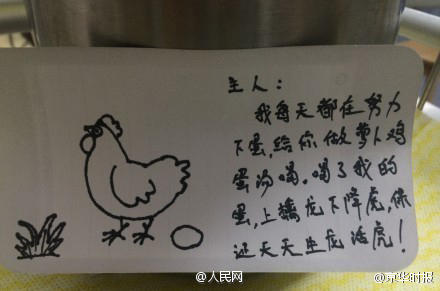 主人：
我每天都在努力
下蛋,给你做萝卜鸡
蛋汤喝。喝了我的
蛋,上擒龙下降虎,保
证天天生龙活虎!
@人民网
@京华时报